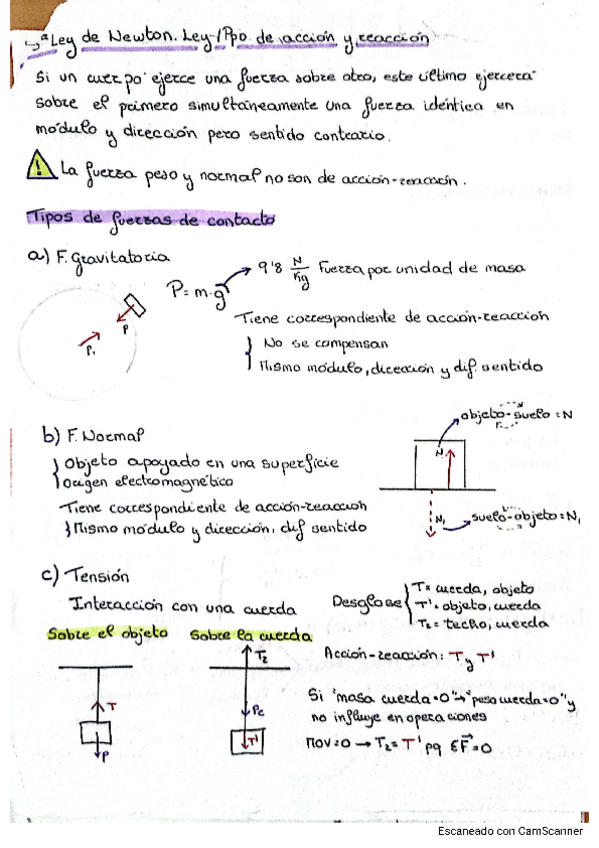 ↳ª Ley de Newton. Ley/Ppo de acción y reacción
Si un cuerpo ejerce una fuerza sobre otro, este último ejercerá
sobre el primero simultáneamente una fuerza idéntica en
módulo y dirección pero sentido contrario.
! La fuerza peso y normal no son de acción-reacción.
Tipos de fuerzas de contacto
a) F. Gravitatoria
P = m·g → 9'8 N/Kg Fuerza por unidad de masa
P
P₁
Tiene correspondiente de acción-reacción
No se compensan
Mismo módulo, dirección y dif. sentido
b) F. Normal
objeto-suelo = N
Objeto apoyado en una superficie
Origen electromagnético
N
Tiene correspondiente de acción-reacción
N₁
suelo-objeto = N₁
Mismo módulo y dirección, dif sentido
c) Tensión
Interacción con una cuerda
Desglose
T = cuerda, objeto
T' = objeto, cuerda
T₂ = techo, cuerda
Sobre el objeto
Sobre la cuerda
T₂
Acción-reacción: T y T'
T
Pc
P
T'
Si "masa cuerda = 0" → "peso cuerda = 0" y
no influye en operaciones
MOV = 0 → T₂ = T' pq ΣF⃗ = 0
Escaneado con CamScanner